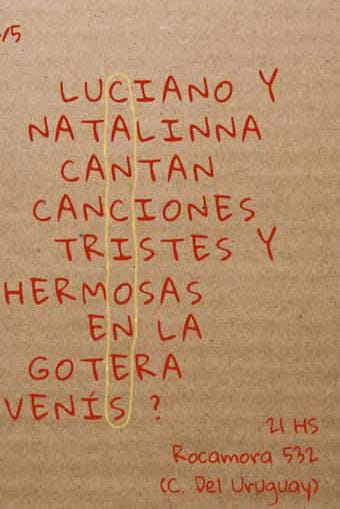 /5
LUCIANO Y
NATALINNA
CANTAN
CANCIONES
TRISTES Y
HERMOSAS
EN LA
GOTERA
VENÍS ?
21 HS
Rocamora 532
(C. Del Uruguay)